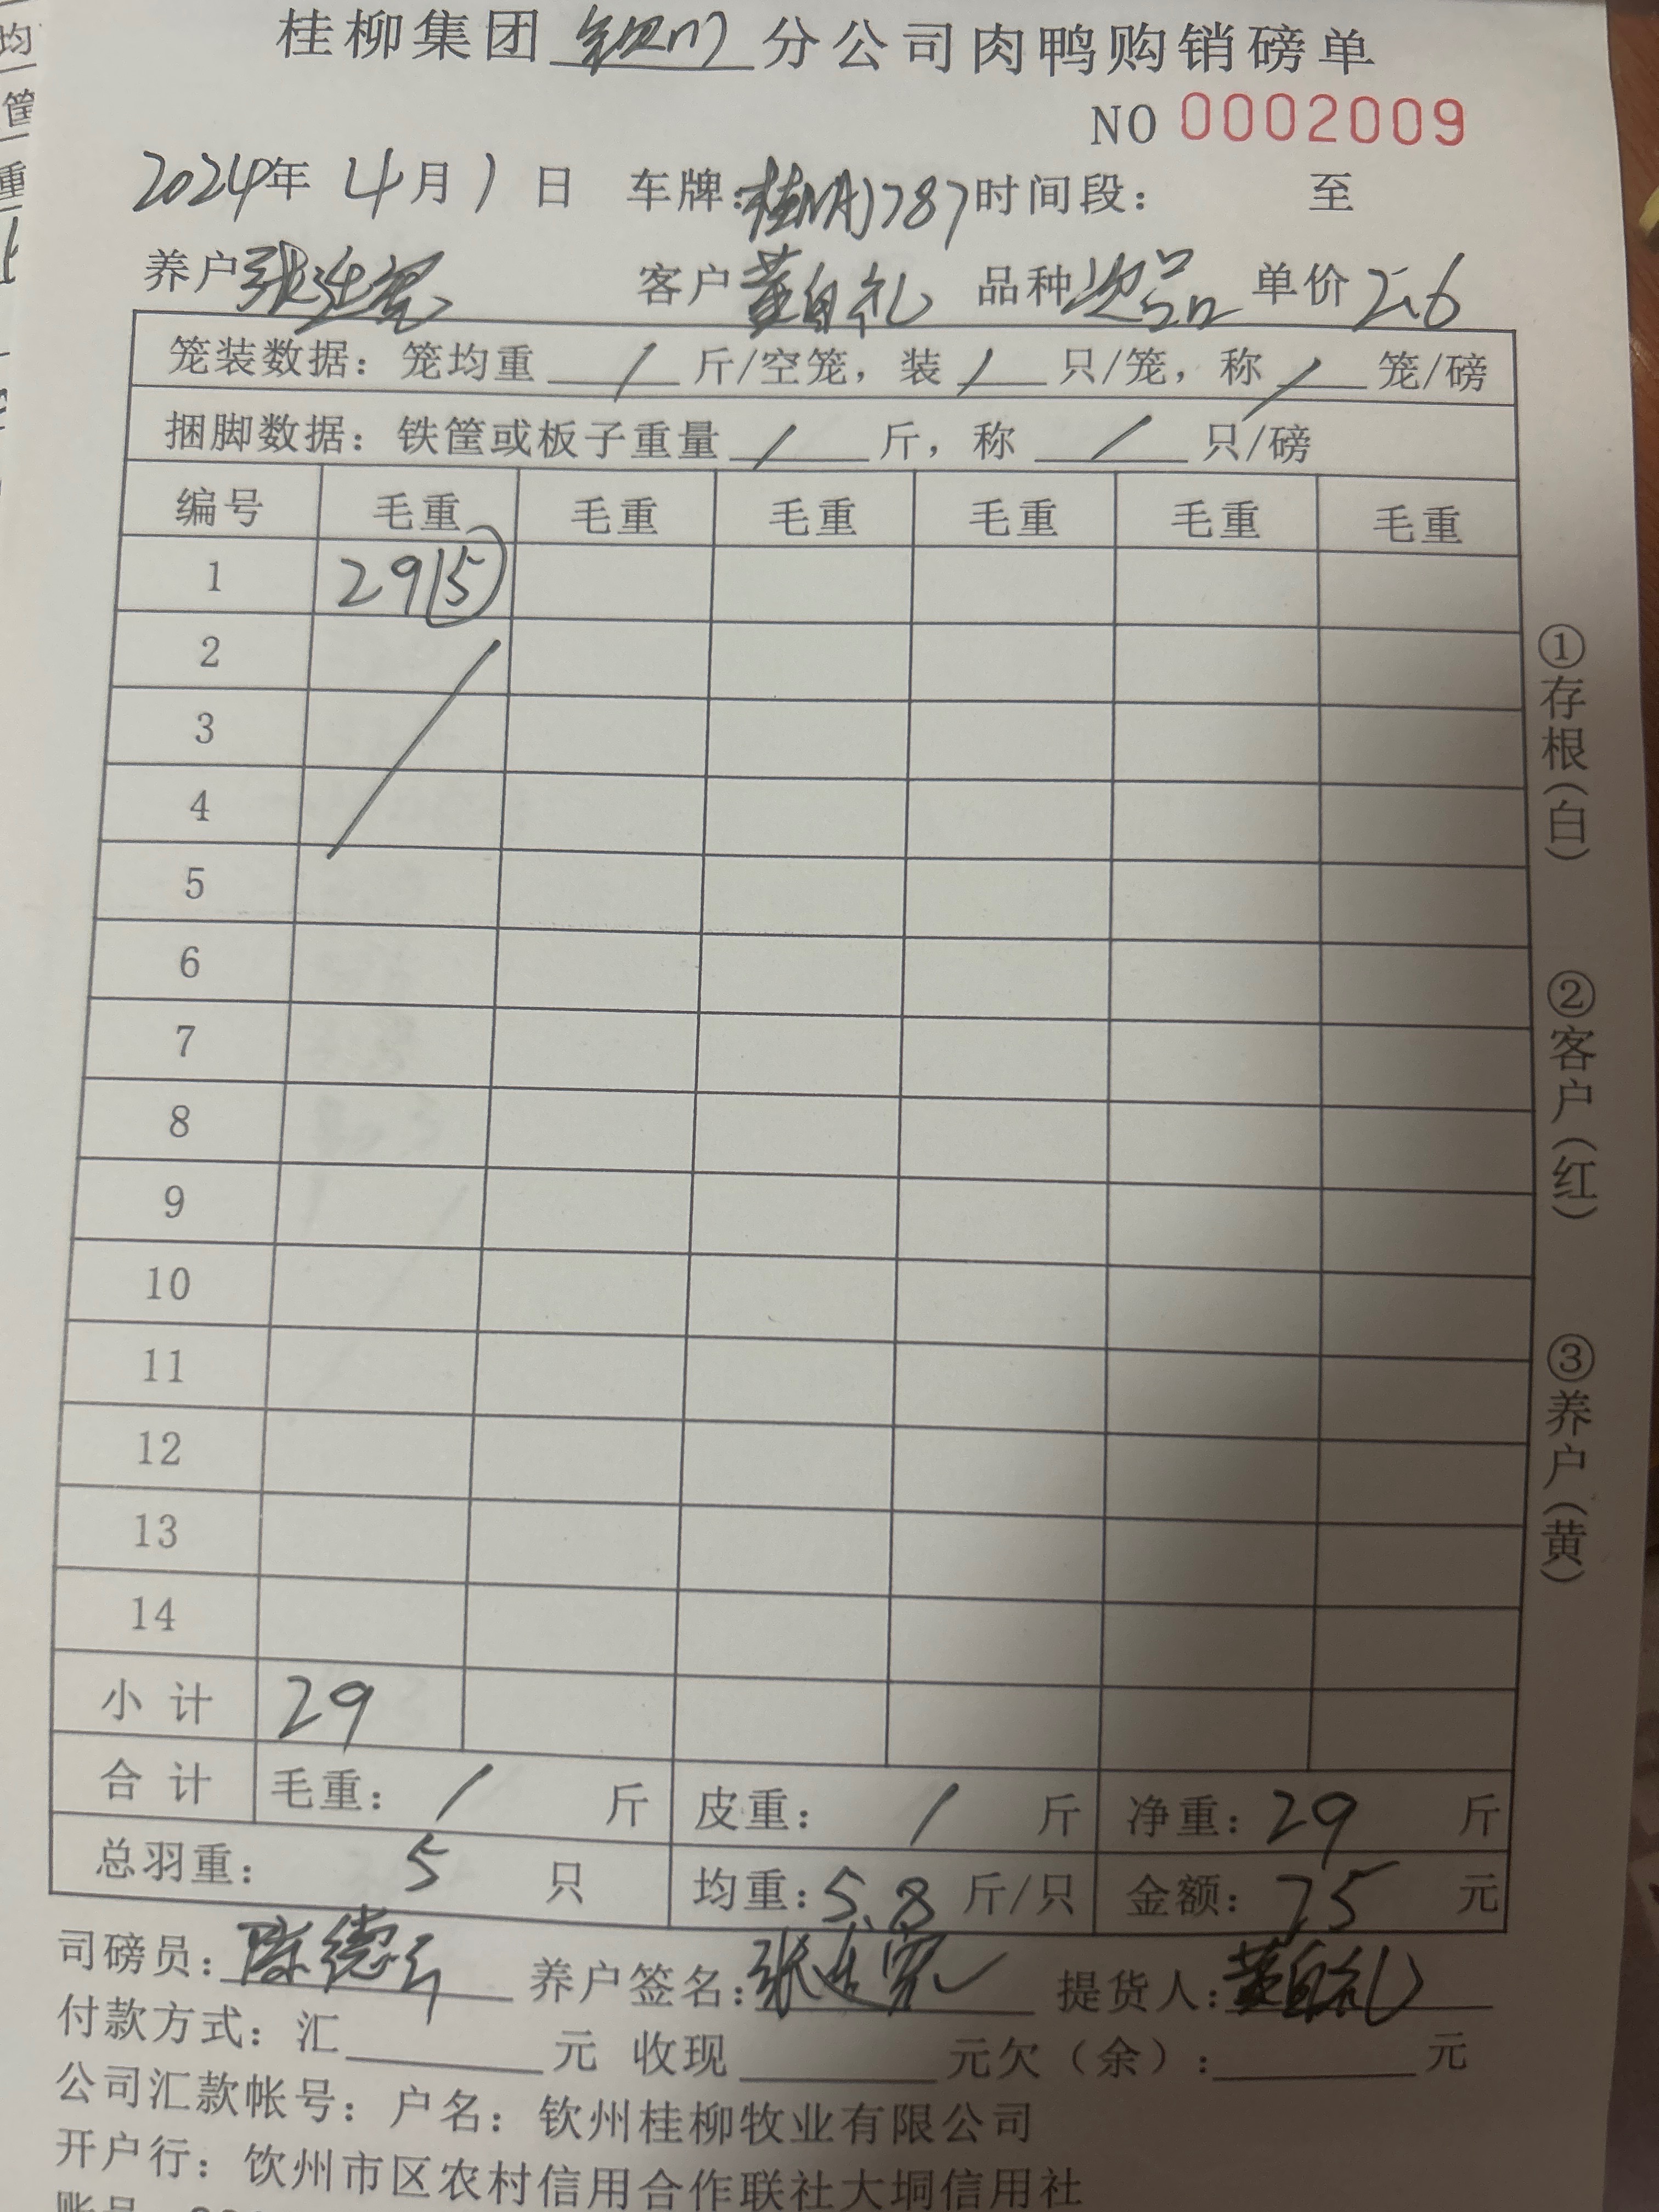 桂柳集团 钦州 分公司肉鸭购销磅单
NO 0002009
2024年 4月 1日 车牌: 787 时间段: 至
养户 张 客户 黄自礼 品种 次品 单价 2.6
笼装数据: 笼均重 / 斤/空笼, 装 / 只/笼, 称 / 笼/磅
捆脚数据: 铁筐或板子重量 / 斤, 称 / 只/磅
编号 毛重 毛重 毛重 毛重 毛重 毛重
1 29 (5)
2
3
4
5
6
7
8
9
10
11
12
13
14
小计 29
合计 毛重: / 斤 皮重: / 斤 净重: 29 斤
总羽重: 5 只 均重: 5.8 斤/只 金额: 75 元
司磅员: 陈德 养户签名: 张 提货人: 黄自礼
付款方式: 汇 元 收现 元欠(余): 元
公司汇款帐号: 户名: 钦州桂柳牧业有限公司
开户行: 钦州市区农村信用合作联社大垌信用社
①存根(白) ②客户(红) ③养户(黄)